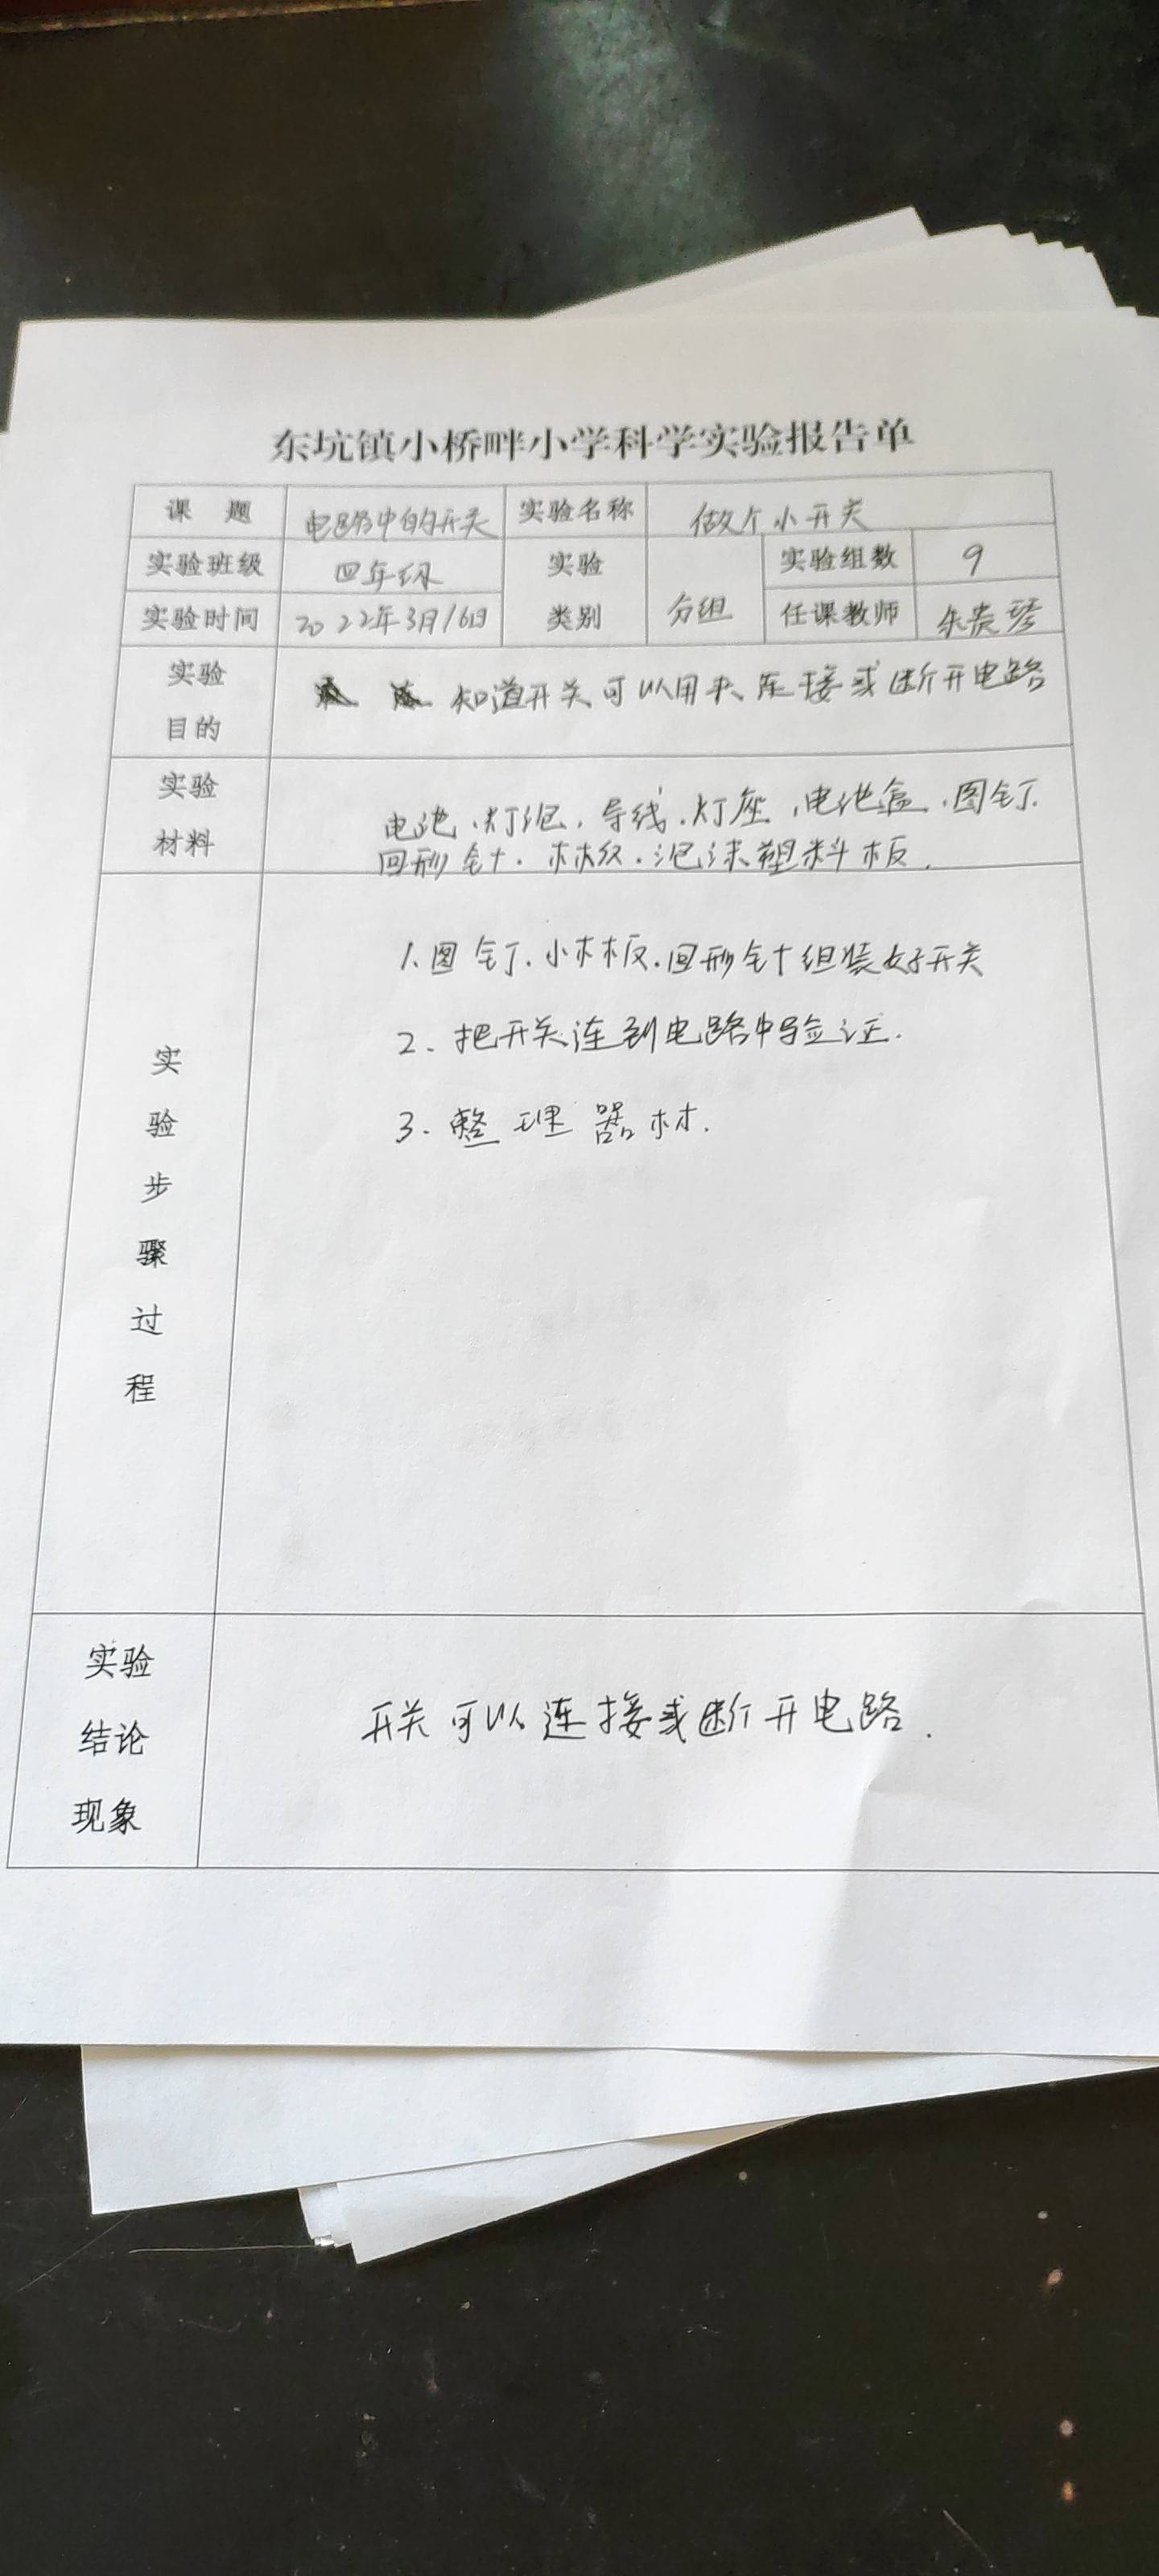 东坑镇小桥畔小学科学实验报告单
课 题 电路中的开关 实验名称 做个小开关
实验班级 四年级 实验 类别 分组 实验组数 9
实验时间 2022年3月16日 任课教师 朱贵琴
实验 目的 知道开关可以用来连接或断开电路
实验 材料 电池、灯泡、导线、灯座、电池盒、图钉、
回形针、木板、泡沫塑料板.
实验步骤过程
1、图钉、小木板、回形针组装好开关
2、把开关连到电路中验证.
3、整理器材.
实验
结论 开关可以连接或断开电路.
现象